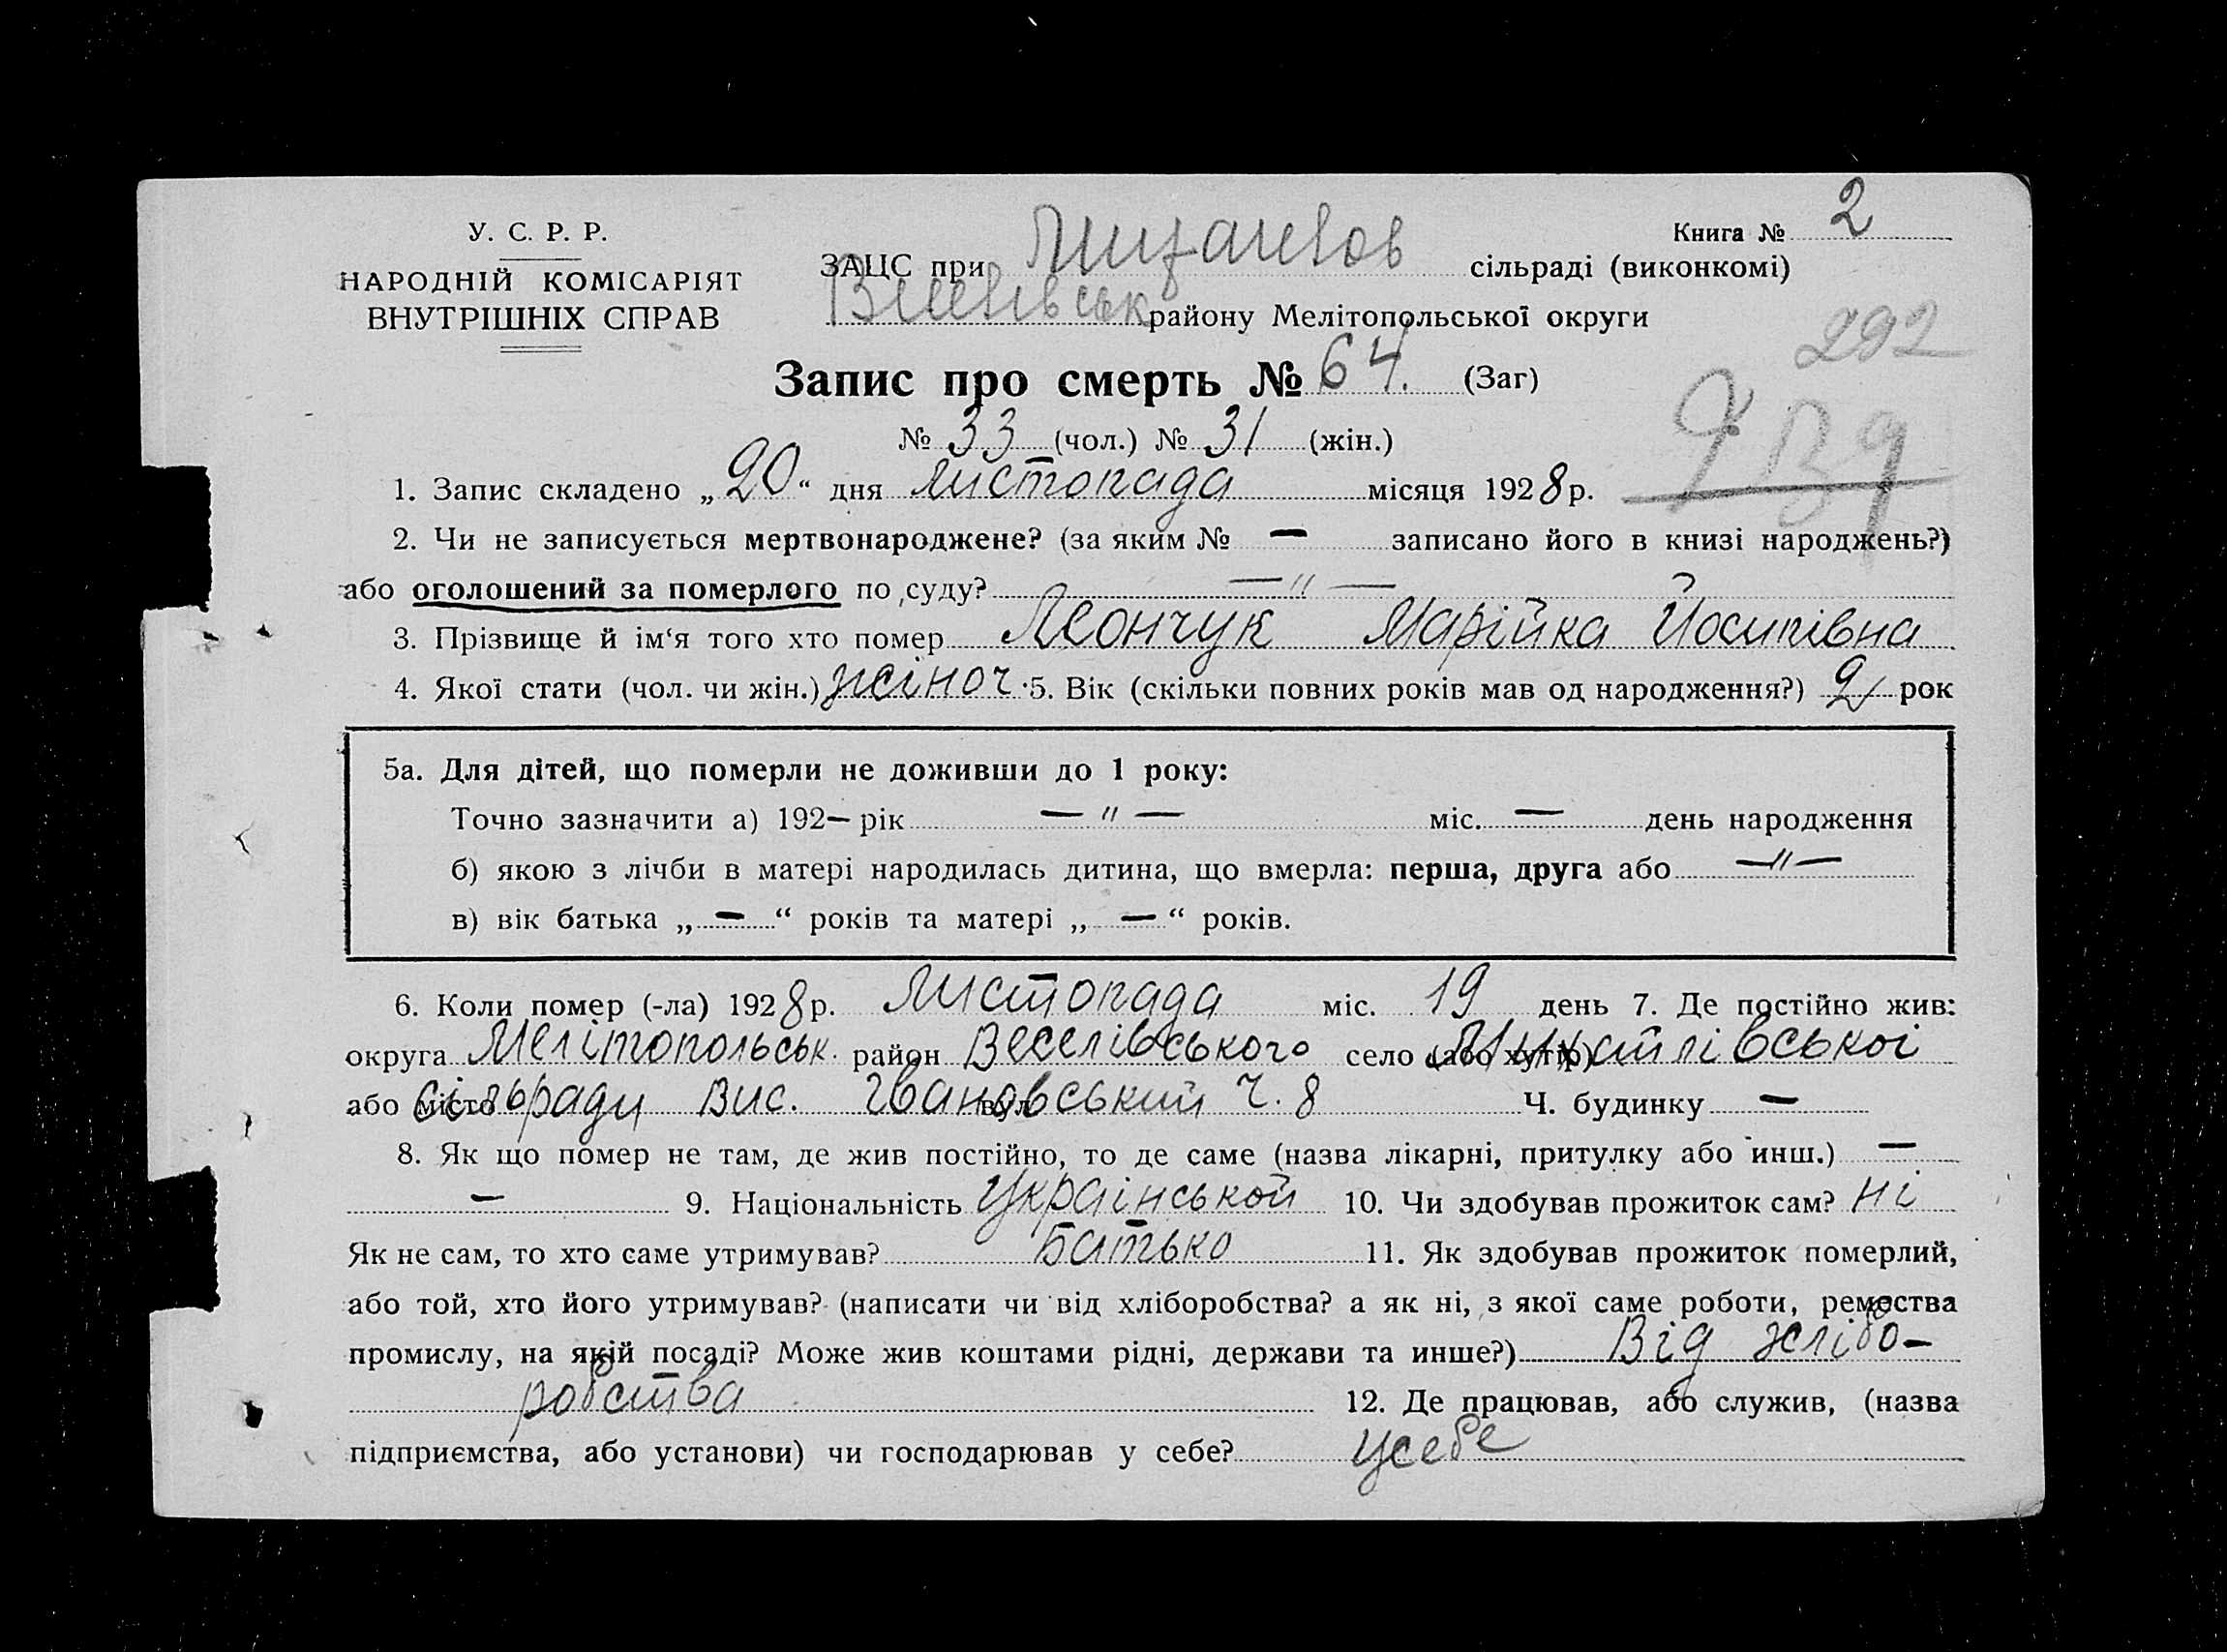 У. С. Р. Р.
НАРОДНІЙ КОМІСАРІЯТ
ВНУТРІШНІХ СПРАВ
Книга № 2
ЗАЦС при сільраді (виконкомі)
району Мелітопольської округи
292
Запис про смерть № 64. (Заг)
№ 33 (чол.) № 31 (жін.)
1. Запис складено „20“ дня листопада місяця 1928 р.
2. Чи не записується мертвонароджене? (за яким № — записано його в книзі народжень?)
або оголошений за померлого по суду? — " —
3. Прізвище й ім‘я того хто помер Леончук Марійка Йосипівна
4. Якої стати (чол. чи жін.) жіноч. 5. Вік (скільки повних років мав од народження?) 2 рок
5а. Для дітей, що померли не доживши до 1 року:
Точно зазначити а) 192— рік — " — міс. — день народження
б) якою з лічби в матері народилась дитина, що вмерла: перша, друга або —"—
в) вік батька „—“ років та матері „—“ років.
6. Коли помер (-ла) 1928 р. Листопада міс. 19 день 7. Де постійно жив:
округа Мелітопольськ. район Веселівського село (або хутір) Михайлівської
або місто сільради Вис. вул. Івановський Ч. 8 Ч. будинку —
8. Як що помер не там, де жив постійно, то де саме (назва лікарні, притулку або инш.) —
— 9. Національність Української 10. Чи здобував прожиток сам? ні
Як не сам, то хто саме утримував? Батько 11. Як здобував прожиток померлий,
або той, хто його утримував? (написати чи від хліборобства? а як ні, з якої саме роботи, ремества
промислу, на якій посаді? Може жив коштами рідні, держави та инше?) Від хлібо-
робства 12. Де працював, або служив, (назва
підприємства, або установи) чи господарював у себе? усебе